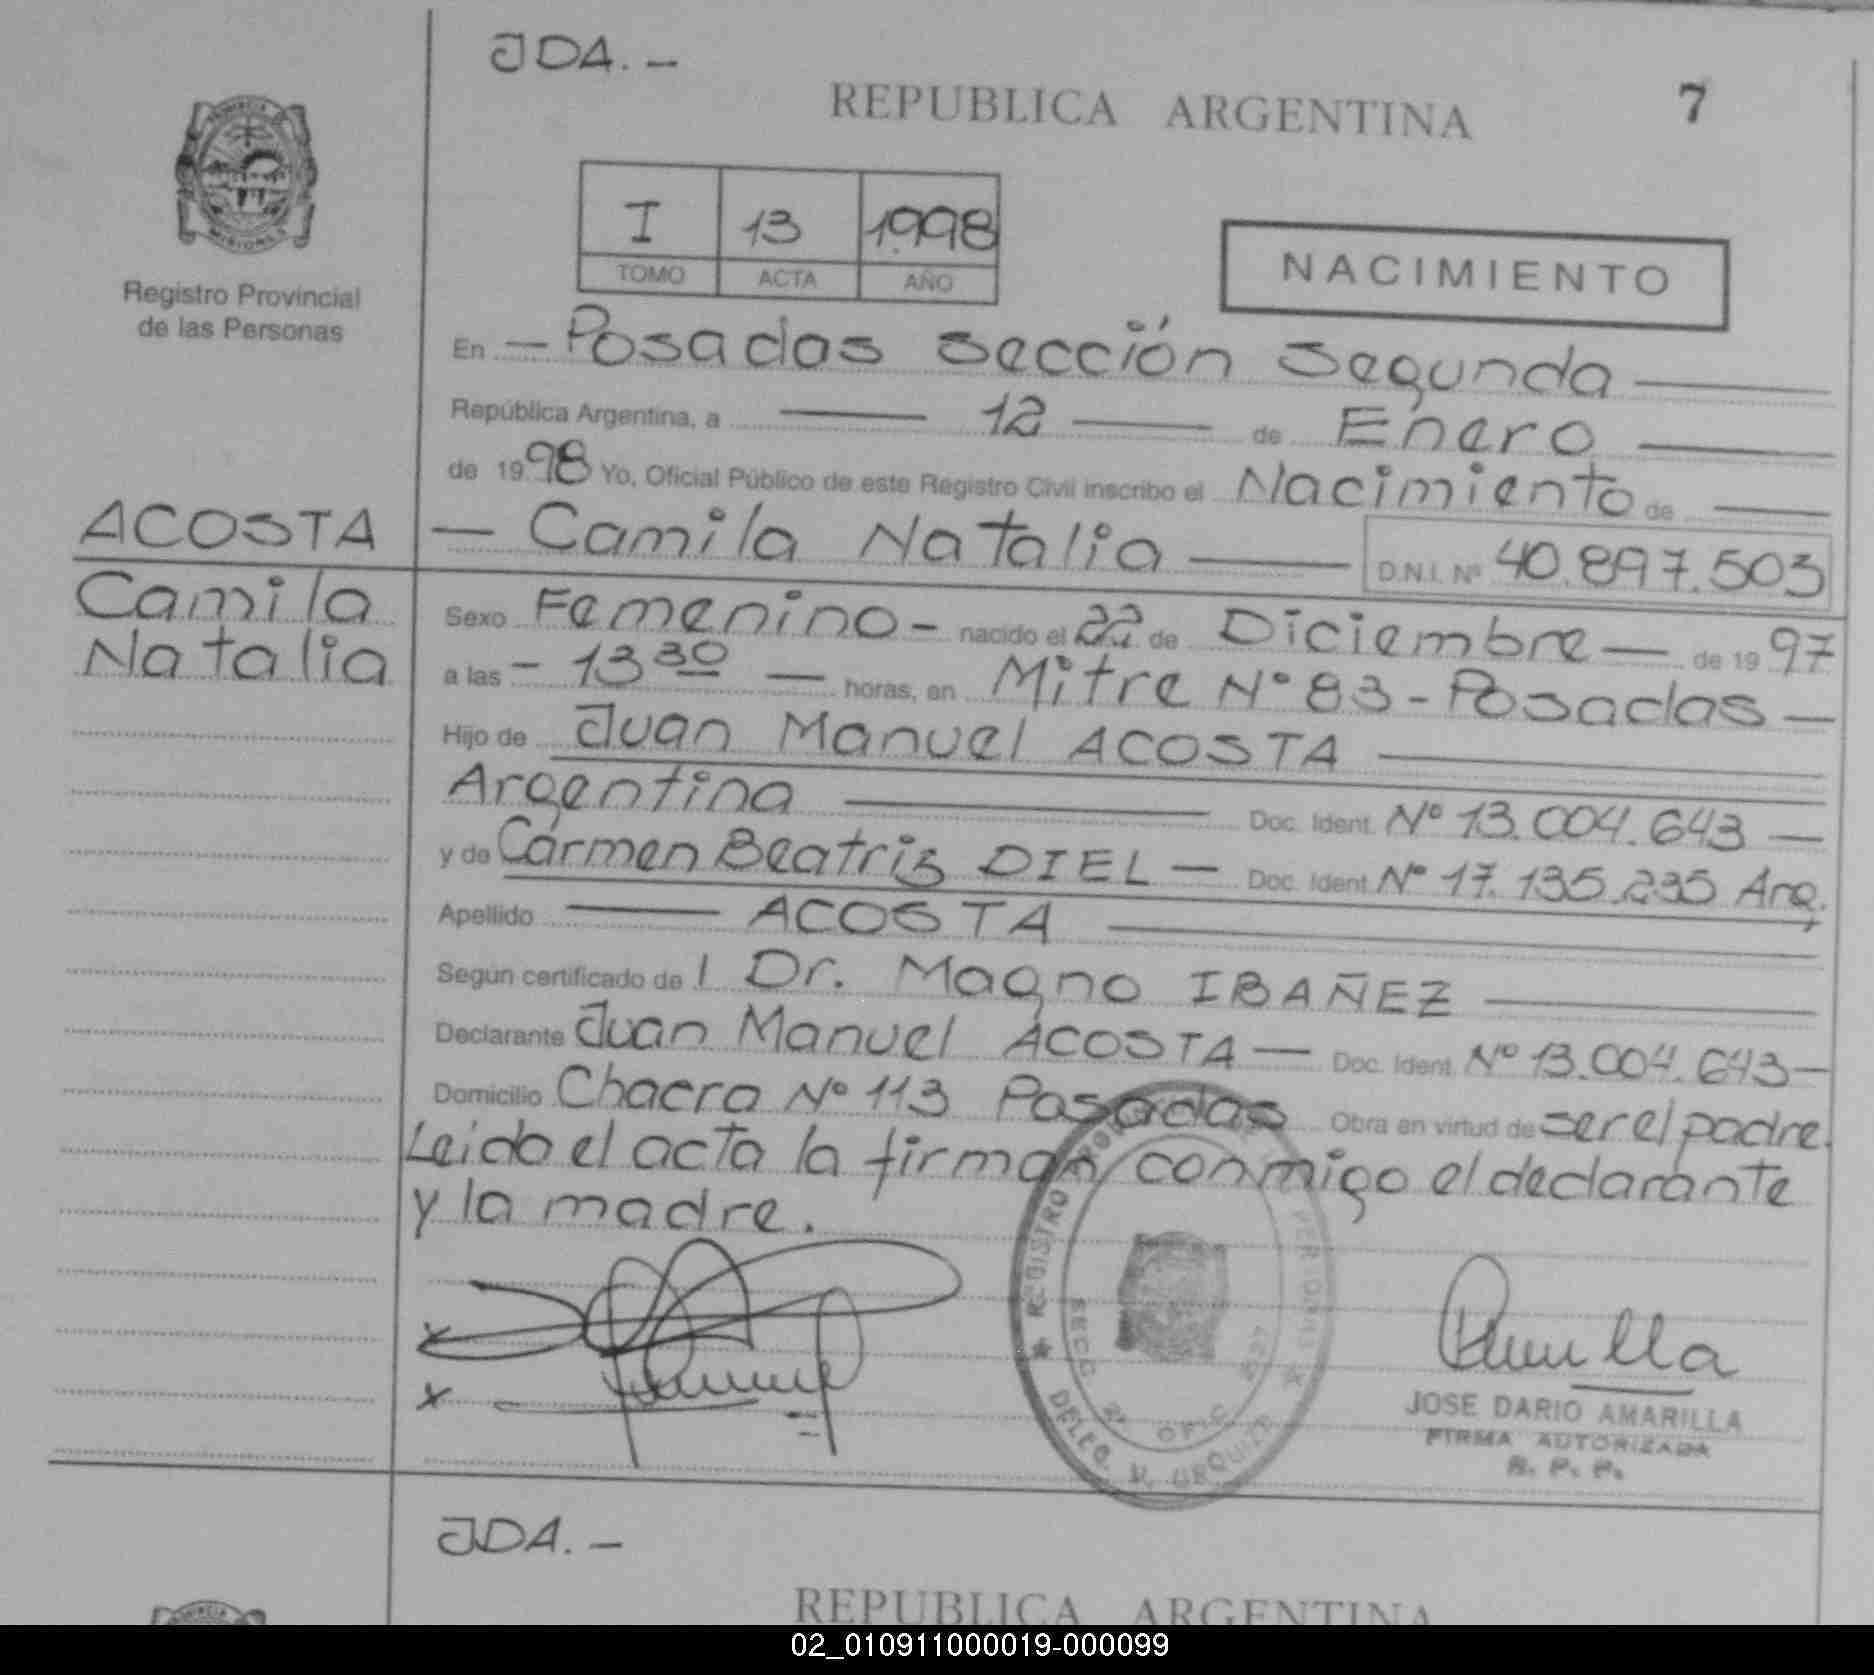 JDA.-
REPUBLICA ARGENTINA
7
PROVINCIA
MISIONES
Registro Provincial
de las Personas
I 13 1998
TOMO ACTA AÑO
NACIMIENTO
En - Posadas sección segunda
República Argentina, a 12 de Enero
de 1998 Yo, Oficial Público de este Registro Civil inscribo el Nacimiento de
ACOSTA
Camila
Natalia
- Camila Natalia D.N.I. Nº 40.897.503
Sexo Femenino - nacido el 22 de Diciembre - de 1997
a las - 13 30 - horas, en Mitre Nº 83 - Posadas -
Hijo de Juan Manuel ACOSTA
Argentina Doc. Ident. Nº 13.004.643 -
y de Carmen Beatris DIEL - Doc. Ident. Nº 17.135.235 Arg.
Apellido ACOSTA
Según certificado de l Dr. Magno IBAÑEZ
Declarante Juan Manuel ACOSTA - Doc. Ident. Nº 13.004.643 -
Domicilio Chacra Nº 113 Posadas Obra en virtud de ser el padre.
Leido el acta la firman conmigo el declarante
y la madre.
x
x
REGISTRO
SECC 2ª OFIC 2527
DELEG. V. URQUIZA
JOSE DARIO AMARILLA
FIRMA AUTORIZADA
R. P. P.
JDA.-
PROVINCIA
REPUBLICA ARGENTINA
02_010911000019-000099